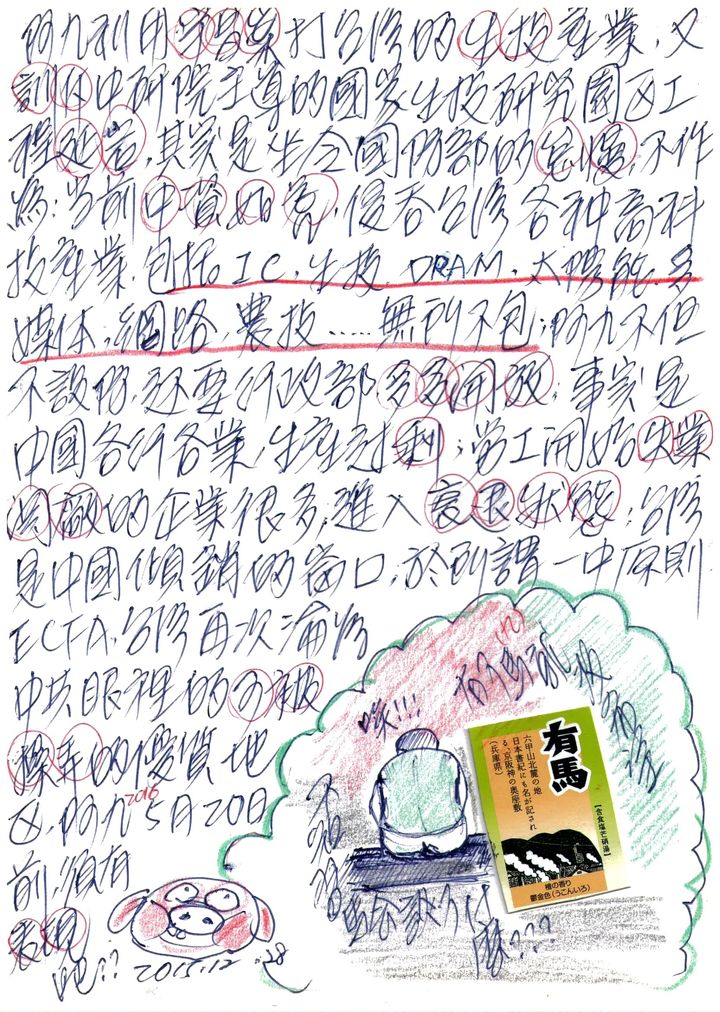 阿九利用 打台灣的生技產業,又
中研院主導的國家生技研究園區工
程延宕,其實是生今國防部的怠惰,不作
為;當前中資 ,侵吞台灣各種高科
技產業,包括IC,生技 DRAM,太陽能,多
媒体,網路 農技……無所不包;阿九不但
不設防,还要行政部多多開放;事實是
中國各行各業,生產过剩;勞工開始失業
関廠的企業很多,進入衰退狀態;台灣
是中國傾銷的窗口,於所謂一中原則
ECFA,台灣再次淪為
中共眼裡的可被
的優質地
区,阿九2016 5月20日
前,須有
表現
吧??
2015.12.28
唉!!!
有馬
六甲山北麓の地
日本書紀にも名が記され
る、京阪神の奥座敷
(兵庫県)
【含食塩芒硝湯】
檜の香り
鬱金色(うこんいろ)
麼???